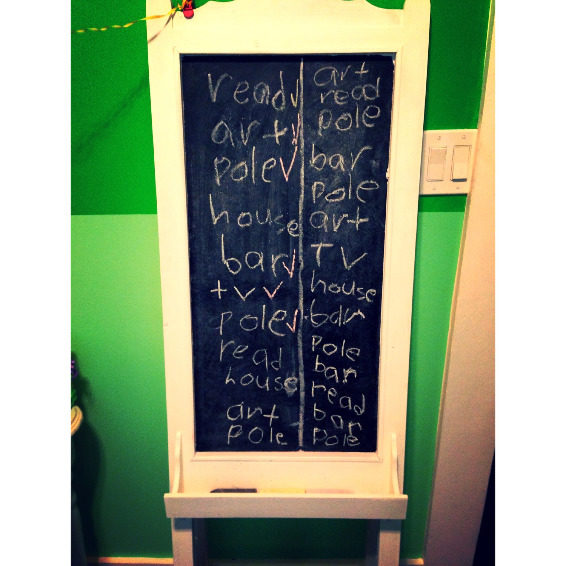 read
art
pole
house
bar
tv
pole
read
house
art
pole
art
read
pole
bar
pole
art
TV
house
bar
pole
bar
read
bar
pole